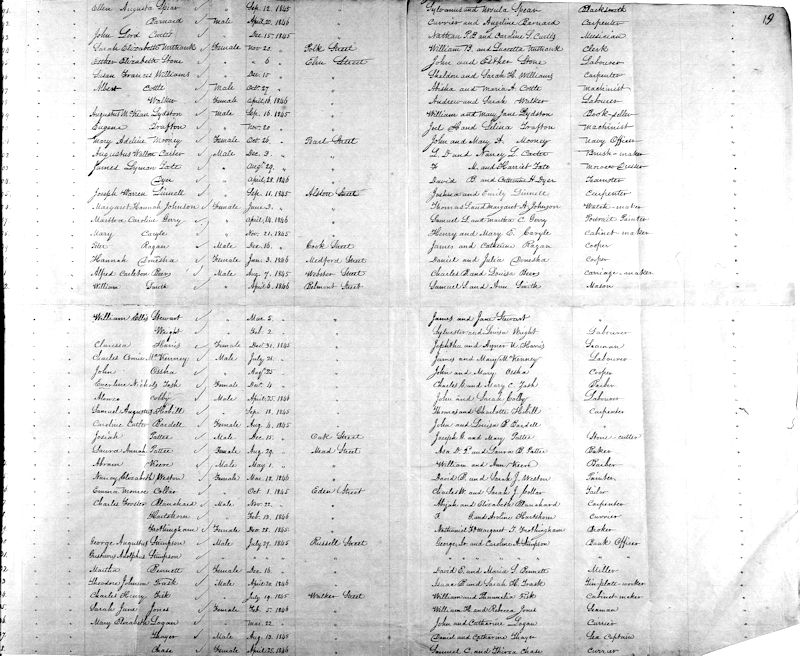 19
Ellen Augusta Spear " Sep. 12, 1845 Sylvanus and Ursula Spear Blacksmith
Barnard " Male April 20, 1846 Currier and Angeline Barnard Carpenter
John Lord Curtis " Dec. 15, 1845 Nathan P. B. and Caroline S. Curtis Musician
Sarah Elizabeth Female Nov. 20, Polk Street William B. and Clerk
Esther Elizabeth Stone " " 6 Elm Street John and Esther Stone Labourer
Susan Frances Williams " Dec. 15 " Sheldon and Sarah H. Williams Carpenter
Albert Cottle Male Oct. 27 " and Maria A. Cottle Machinist
Walker Female April 16, 1846 " Andrew and Sarah Walker Labourer
Augustus Lydston Male Sep. 16, 1845 " William and Mary Jane Lydston Book-seller
Eugene Grafton " Nov. 20 " Joel and Selina Grafton Machinist
Mary Adeline Mooney Female Oct. 26 Pearl Street John and Mary A. Mooney Navy Officer
Augustus Walton Carter Male Dec. 3 " L. D. and Nancy L. Carter Brush-maker
James Lyman Tate " Aug. 29 " and Harriet Tate
Dyer " April 28, 1846 " David B. and Catherine H. Dyer Teamster
Joseph Warren Linnell " Sep. 11, 1845 Alston Street Joshua and Emily Linnell Carpenter
Margaret Hannah Johnson Female June 3 " Thomas L. and Margaret A. Johnson Watch-maker
Martha Caroline Gerry " April 14, 1846 " Samuel L. and Martha C. Gerry Portrait Painter
Mary Caryle " Nov. 21, 1845 " Henry and Mary E. Caryle Cabinet-maker
Peter Ragan Male Dec. 16 Cook Street James and Catherine Ragan Cooper
Hannah Female Jan. 3, 1846 Medford Street Daniel and Julia Cooper
Alfred Carleton Beers Male Aug. 7, 1845 Webster Street Charles B. and Louisa Beers Carriage-maker
William Smith " April 6, 1846 Belmont Street Samuel S. and Ann Smith Mason
William Ellis Stewart " Mar. 5 " James and Jane Stewart "
Wright " Feb. 2 " Sylvester and Louisa Wright Labourer
Clarissa Harris Female Dec. 31, 1845 " Jephtha and Agnes N. Harris Seaman
Charles McKenney Male July 21 " James and Mary McKenney Labourer
John " Aug. 25 " John and Mary Cooper
Eveline Nichols Tash Female Dec. 4 " Charles G. and Mary C. Tash Baker
Alonzo Colby Male April 25, 1846 " John and Sarah Colby Labourer
Samuel Augustus " Sep. 18, 1845 " Thomas and Charlotte Carpenter
Caroline Cutter Bardell Female Aug. 4, 1845 " John and Louisa B. Bardell "
Josiah Pattee Male Dec. 15 Oak Street Joseph G. and Mary Pattee Stone-cutter
Louisa Annah Pattee Female Aug. 29 Mead Street Asa D. and Laura B. Pattee Baker
Abram Male May 1 " William and Ann Barber
Nancy Elizabeth Weston Female Mar. 18, 1846 " David P. and Sarah J. Weston Painter
Emma Monroe Collar " Oct. 1, 1845 Eden Street Charles W. and Sarah J. Collar Tailor
Charles Forster Blanchard Male Nov. 22 " Abijah and Elizabeth Blanchard Carpenter
Hartshorn " Feb. 13, 1846 " and Hartshorn Currier
Frothingham Female Dec. 28, 1845 " Nathaniel and Margaret T. Frothingham Broker
George Augustus Simpson Male July 27, 1845 Russell Street George Jr. and Caroline A. Simpson Bank Officer
Gustavus Adolphus Simpson " " " " "
Martha Bennett Female Dec. 16 " David E. and Maria S. Bennett Miller
Theodore Johnson Trask Male April 20, 1846 " Isaac B. and Sarah H. Trask Tin-plate-worker
Charles Henry Fisk " July 19, 1845 Walker Street William and Fisk Cabinet-maker
Sarah Jane Jones Female Feb. 27, 1846 " William H. and Rebecca Jones Seaman
Mary Elizabeth Logan " Mar. 22 " John and Catharine Logan Currier
Thayer Male Aug. 13, 1845 " Daniel and Catharine Thayer Sea Captain
Chase Female April 25, 1846 " Samuel C. and Chase Currier